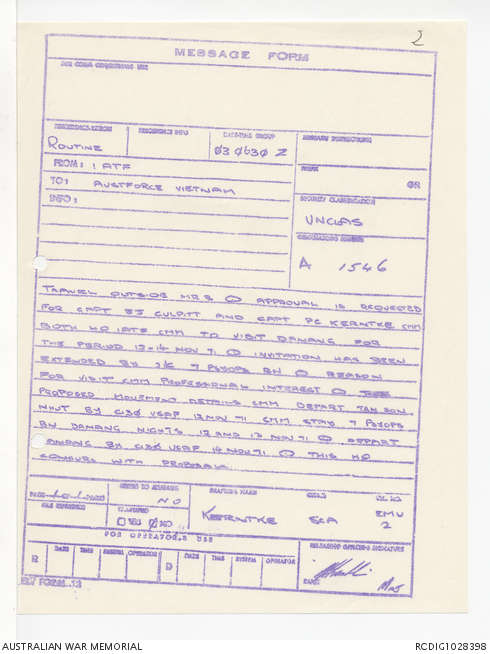 2
MESSAGE FORM
FOR COMM CENTRE/SIGNS USE
PRECEDENCE-ACTION
PRECEDENCE-INFO
DATE-TIME GROUP
MESSAGE INSTRUCTIONS
ROUTINE
030630 Z
FROM: 1 ATF
PREFIX
GR
TO: AUSTFORCE VIETNAM
SECURITY CLASSIFICATION
INFO:
UNCLAS
ORIGINATORS NUMBER
A 1546
TRAVEL OUTSIDE MR3 (.) APPROVAL IS REQUESTED
FOR CAPT BJ CULPITT AND CAPT PC KERNTKE CMM
BOTH HQ 1ATF CMM TO VISIT DANANG FOR
THE PERIOD 12-14 NOV 71 (.) INVITATION HAS BEEN
EXTENDED BY 7 PSYOPS BN (.) REASON
FOR VISIT CMM PROFESSIONAL INTEREST (.)
PROPOSED MOVEMENT DETAILS CMM DEPART TAN SON
NHUT BY C130 USAF 12 NOV 71 CMM STAY 7 PSYOPS
BN DANANG NIGHTS 12 AND 13 NOV 71 (.) DEPART
DANANG BY C130 USAF 14 NOV 71 (.) THIS HQ
CONCURS WITH PROPOSAL
PAGE 1 OF 1 PAGES
REFERS TO MESSAGE
DRAFTERS NAME
NO
CLASSIFIED
YES NO
KERNTKE
EMU
2
FOR OPERATORS USE
RELEASING OFFICERS SIGNATURE
R DATE TIME SYSTEM OPERATOR D DATE TIME SYSTEM OPERATOR
RANK MAJ
AUSTRALIAN WAR MEMORIAL RCDIG1028398